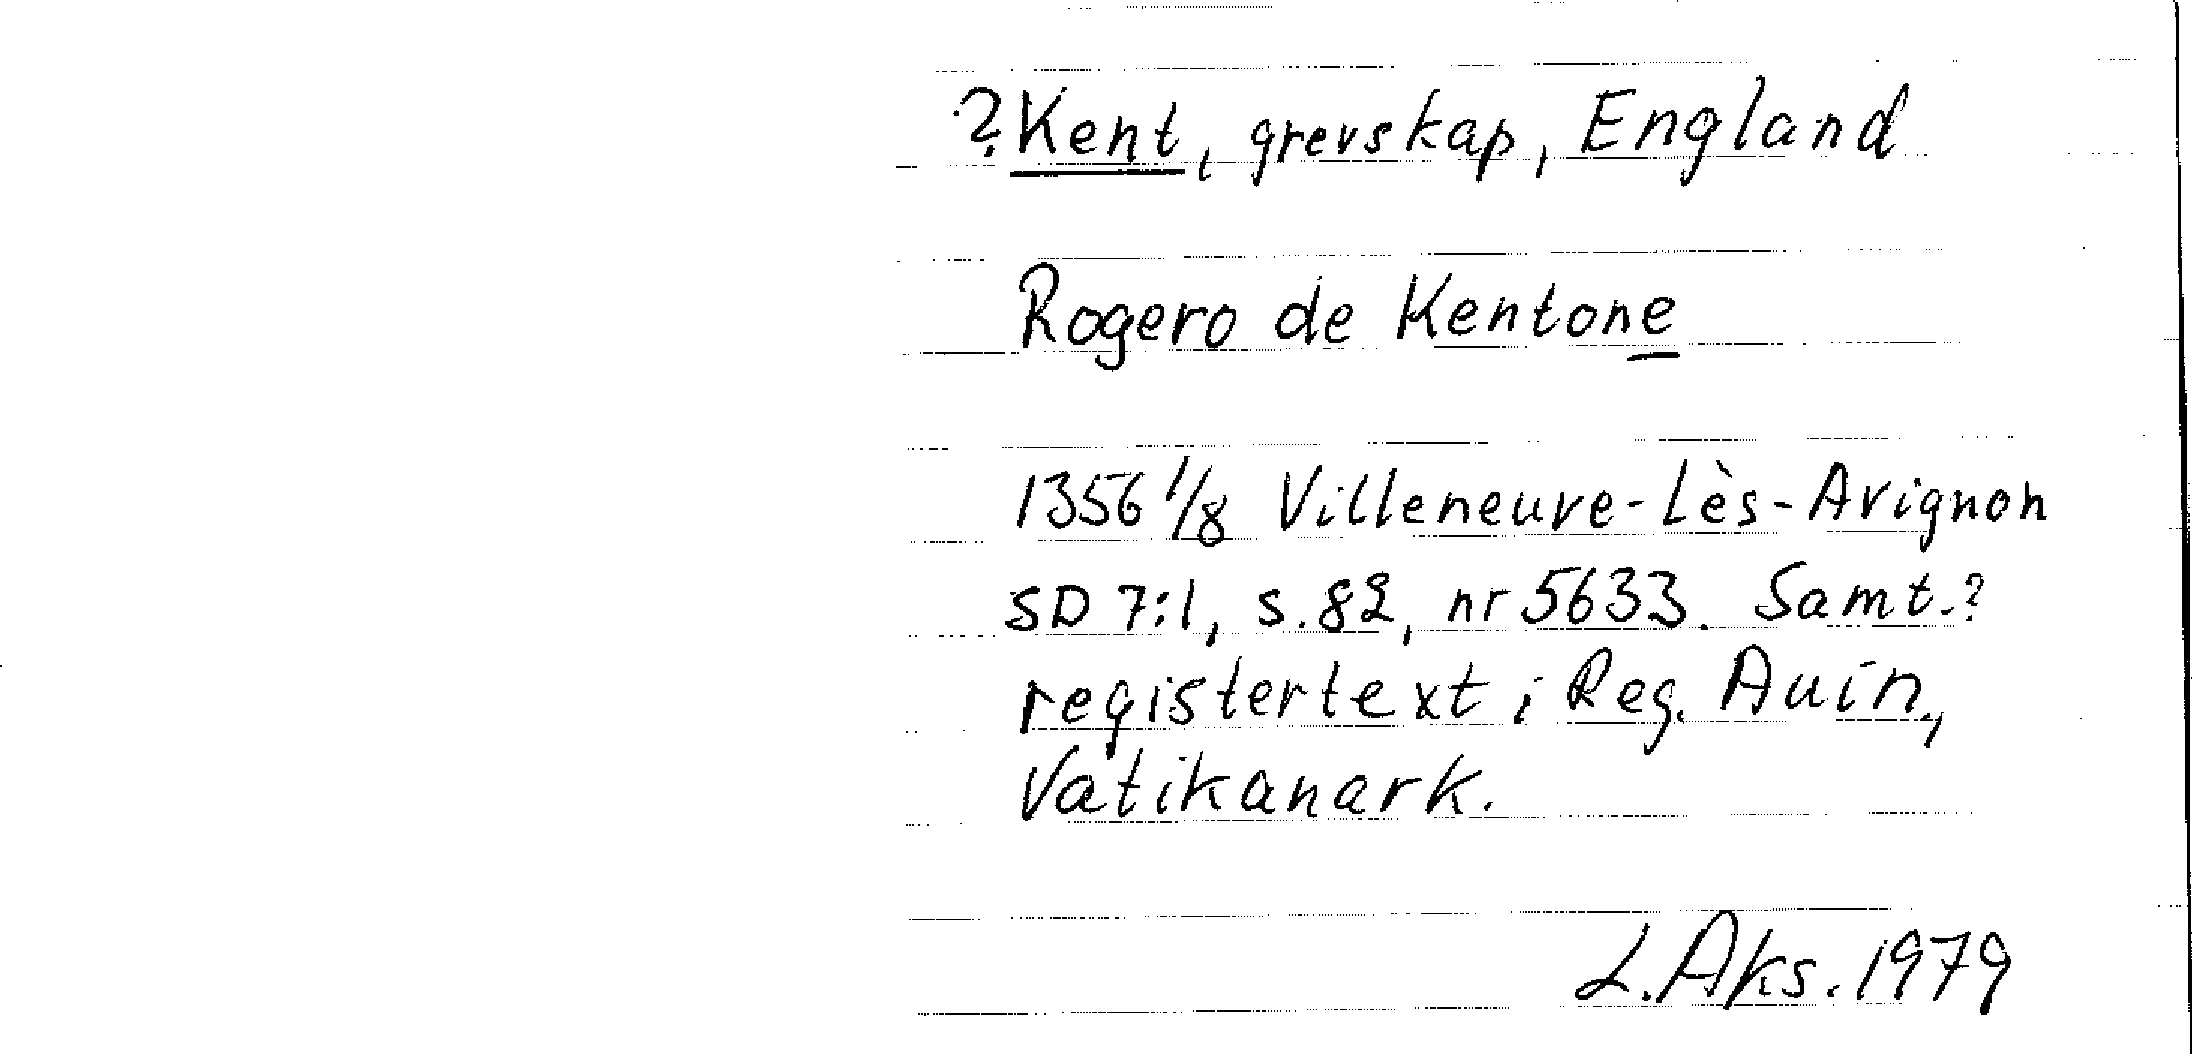 ?Kent, grevskap, England
Rogero de Kentone
1356 1/8 Villeneuve-Lès-Avignon
SD 7:1, s. 82, nr 5633. Samt.?
registertext i Reg. Auin,
Vatikanark.
L. Aks. 1979